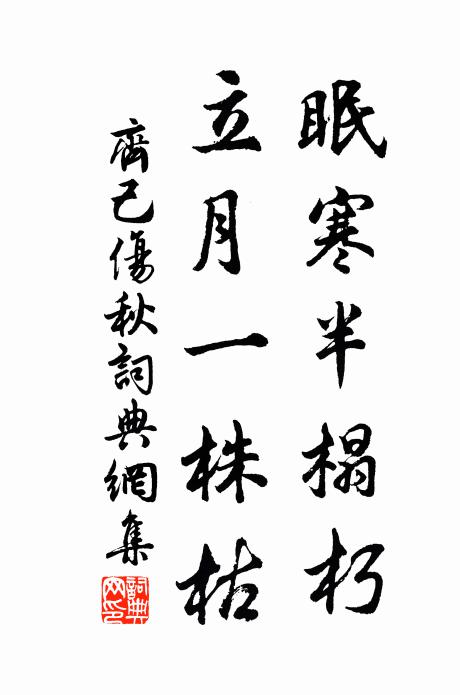 眠寒半榻朽
立月一株枯
齊己傷秋詞典網集
詞典网印